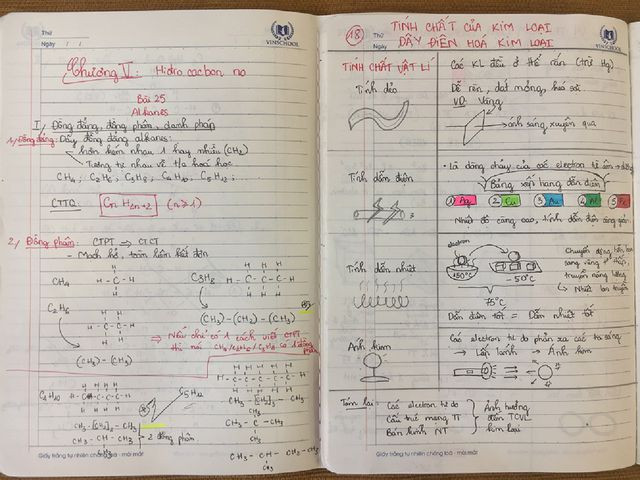 Thứ
Ngày
VINSCHOOL
Chương V: Hiđro cacbon no
Bài 25
Alkanes
I, Đồng đẳng, đồng phân, danh pháp
1, Đồng đẳng: Dãy đồng đẳng alkanes:
- hơn kém nhau 1 hay nhiều (CH2)
- Tương tự nhau về t/c hoá học
CH4, C2H6, C3H8, C4H10, C5H12;
CTTQ: CnH2n+2 (n≥1)
2, Đồng phân: CTPT ⇒ CTCT
- Mạch hở, toàn liên kết đơn
CH4
H
H - C - H
H
C3H8
H H H
H - C - C - C - H
H H H
(CH3) - (CH2) - (CH3)
C2H6
H H
H - C - C - H
H H
(CH3) - (CH3)
⇒ Nếu chỉ có 1 cách viết CTPT
thì nói CH4/C2H6/C3H8 có 1 đồng phân
C4H10
H H H H
H H H H
CH3 - [CH2]2 - CH3
CH3 - CH - CH3
CH3
2 đồng phân
C5H12
H H H H H
H - C - C - C - C - C - H
H H H H H
CH3 - [CH2]3 - CH3
CH3
CH3 - C - CH3
CH3
CH3 - CH - CH2 - CH3
CH3
Giấy trắng tự nhiên chống loá - mỏi mắt
18
Thứ
Ngày
TÍNH CHẤT CỦA KIM LOẠI
DÃY ĐIỆN HOÁ KIM LOẠI
VINSCHOOL
TÍNH CHẤT VẬT LÍ
Các KL đều ở thể rắn (trừ Hg)
Tính dẻo
Dễ rèn, dát mỏng, kéo sợi
VD: Vàng
ánh sáng xuyên qua
Tính dẫn điện
- Là dòng chảy của các electron tự do
Bảng xếp hạng dẫn điện
1 Ag 2 Cu 3 Au 4 Al 5 Fe
Nhiệt độ càng cao, tính dẫn điện càng giảm
Tính dẫn nhiệt
electron
150°C
-50°C
75°C
Chuyển động hỗn loạn
sang vùng
truyền năng lượng
Nhiệt lan truyền
Dẫn điện tốt = Dẫn nhiệt tốt
Ánh kim
Các electron tự do phản xạ các tia sáng
→ Lấp lánh → Ánh kim
Tóm lại:
Các electron tự do
Cấu trúc mạng TT
Bán kính NT
Ảnh hưởng
đến TCVL
kim loại
Giấy trắng tự nhiên chống loá - mỏi mắt